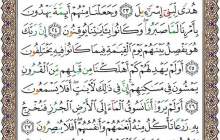 هُدًى لِّبَنِىٓ إِسْرَٰٓءِيلَ ٢٣ وَجَعَلْنَا مِنْهُمْ أَئِمَّةً يَهْدُونَ
بِأَمْرِنَا لَمَّا صَبَرُوا۟ وَكَانُوا۟ بِـَٔايَٰتِنَا يُوقِنُونَ ٢٤ إِنَّ رَبَّكَ
هُوَ يَفْصِلُ بَيْنَهُمْ يَوْمَ ٱلْقِيَٰمَةِ فِيمَا كَانُوا۟ فِيهِ يَخْتَلِفُونَ
٢٥ أَوَلَمْ يَهْدِ لَهُمْ كَمْ أَهْلَكْنَا مِن قَبْلِهِم مِّنَ ٱلْقُرُونِ
يَمْشُونَ فِى مَسَٰكِنِهِمْ إِنَّ فِى ذَٰلِكَ لَـَٔايَٰتٍ أَفَلَا يَسْمَعُونَ
٢٦ أَوَلَمْ يَرَوْا۟ أَنَّا نَسُوقُ ٱلْمَآءَ إِلَى ٱلْأَرْضِ ٱلْجُرُزِ فَنُخْرِجُ
بِهِۦ زَرْعًا تَأْكُلُ مِنْهُ أَنْعَٰمُهُمْ وَأَنفُسُهُمْ أَفَلَا يُبْصِرُونَ ٢٧